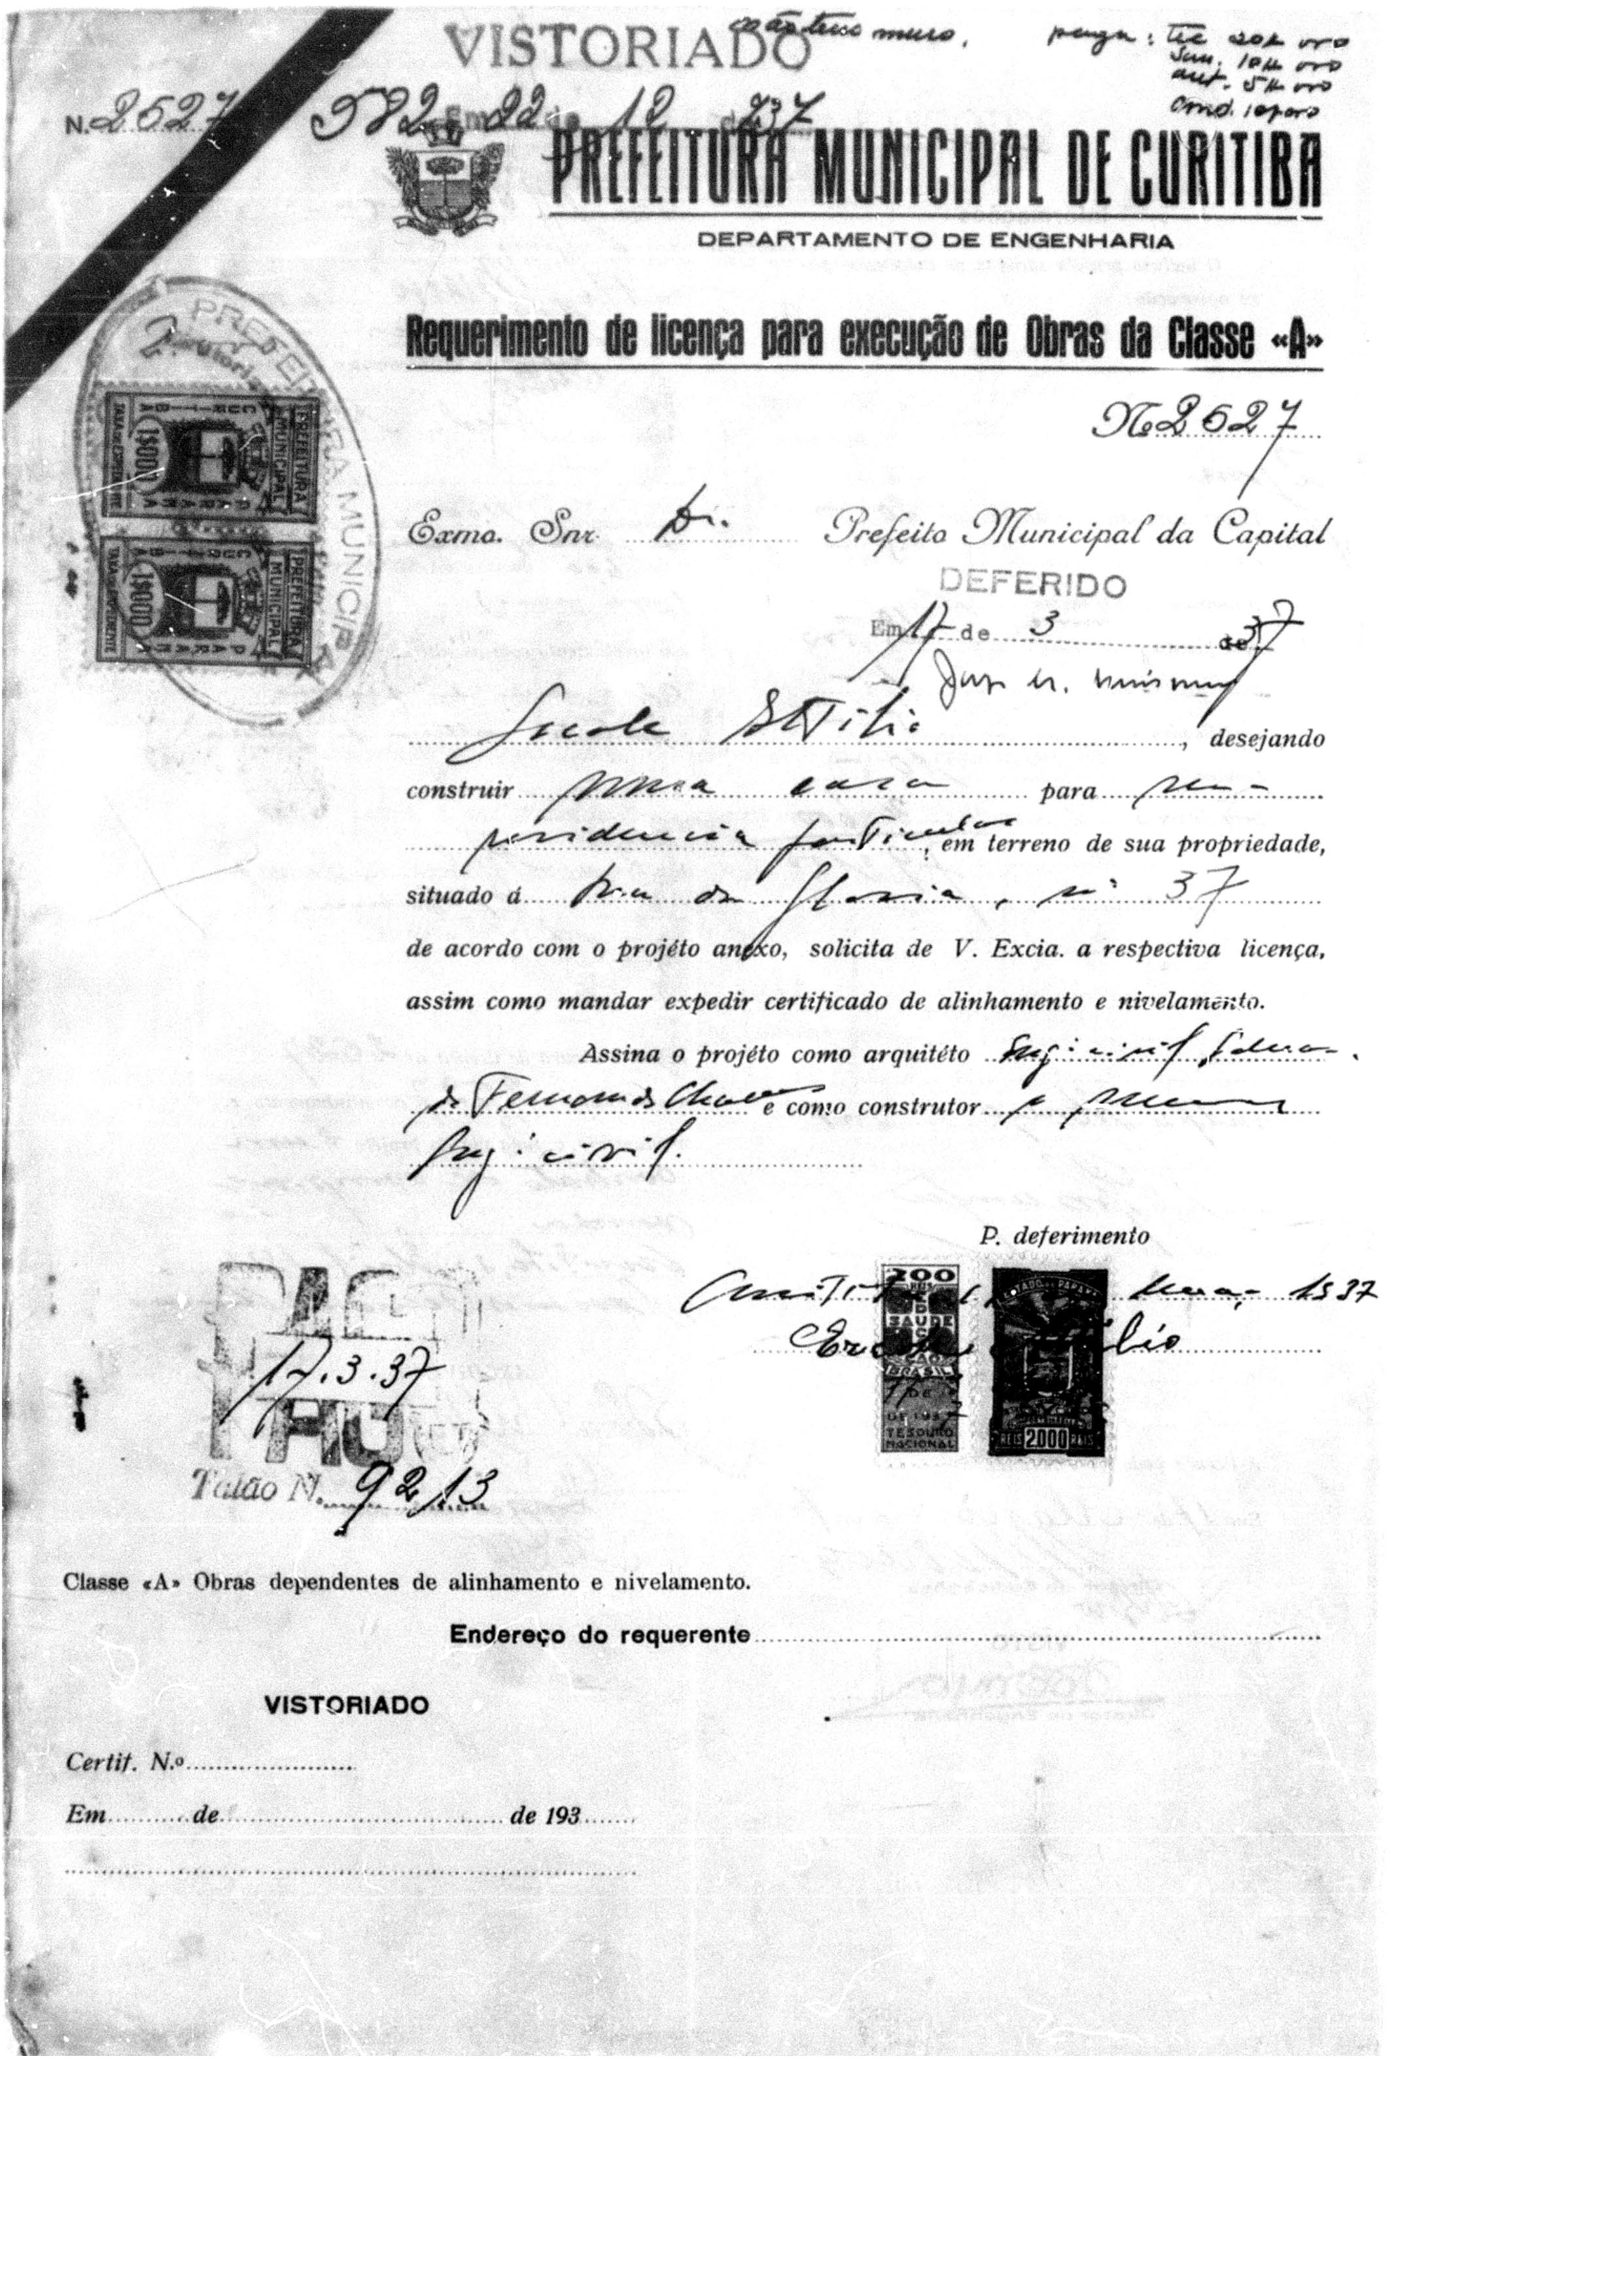 VISTORIADO não tem muro. paga:
N. 2627 582 Em 22 de 12 de 937
PREFEITURA MUNICIPAL DE CURITIBA
DEPARTAMENTO DE ENGENHARIA
Requerimento de licença para execução de Obras da Classe «A»
No 2627
PREFEITURA MUNICIPAL
CURITIBA
PARANÁ
1$000
TAXA DE EXPEDIENTE
PREFEITURA MUNICIPAL
CURITIBA
PARANÁ
1$000
TAXA DE EXPEDIENTE
Exmo. Snr. Dr. Prefeito Municipal da Capital
DEFERIDO
Em 17 de 3 de 37
, desejando
construir uma casa para sua
residencia particular, em terreno de sua propriedade,
situado á Rua da Gloria, nº 37
de acordo com o projéto anexo, solicita de V. Excia. a respectiva licença,
assim como mandar expedir certificado de alinhamento e nivelamento.
Assina o projéto como arquitéto Eng. civil, Eduar-
do Fernando Chaves e como construtor o mesmo
Eng. civil.
P. deferimento
1937
200 REIS
SAUDE
BRASIL
TESOURO
NACIONAL
ESTADO DO PARANÁ
REIS 2.000 REIS
PAGOU
17.3.37
Talão N. 9213
Classe «A» Obras dependentes de alinhamento e nivelamento.
Endereço do requerente
VISTORIADO
Certif. N.º
Em de de 193